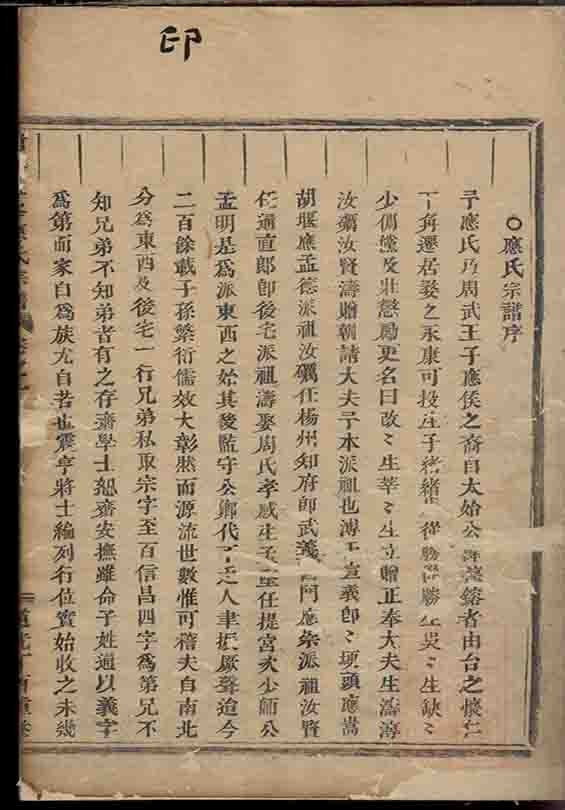 印
〇應氏宗譜序
予應氏乃周武王子應侯之裔自太始公諱 鎔者由台之懷仁
角遷居婺之永康可投庄子緒緒生從勝從勝生 〻生缺〻
少倜儻及壯懲勵更名曰改〻生莘〻生立贈正奉大夫生濤淳
汝礪汝賢濤贈朝請大夫予本派祖也溥 宣義郎〻垻頭應嵩
胡堰應孟德派祖汝礪任楊州知府即武義 門應 派祖汝賢
任通直郎即後宅派祖濤娶周氏孝感生子 任提宮次少師公
孟明是爲派東西之始其後監守公鄉代 人聿振厥聲迨今
二百餘載子孫繁衍儒效大彰然而源流世數惟可稽夫自南北
分爲東西及後宅一行兄弟私取宗字至百信昌四字爲第兄不
知兄弟不知弟者有之存齋學士恕齋安撫雖命子姓通以義字
爲第而家自爲族尤自若也震亨將士編列行位實始收之未幾